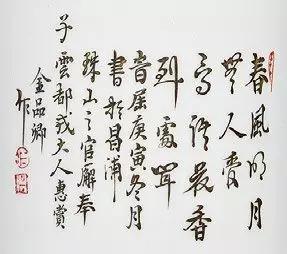 春風明月
無人
最香
到處聞
旹屆庚寅冬月
書於昌浦
珠山之官廨奉
子雲都戎大人惠賞
金品卿
作